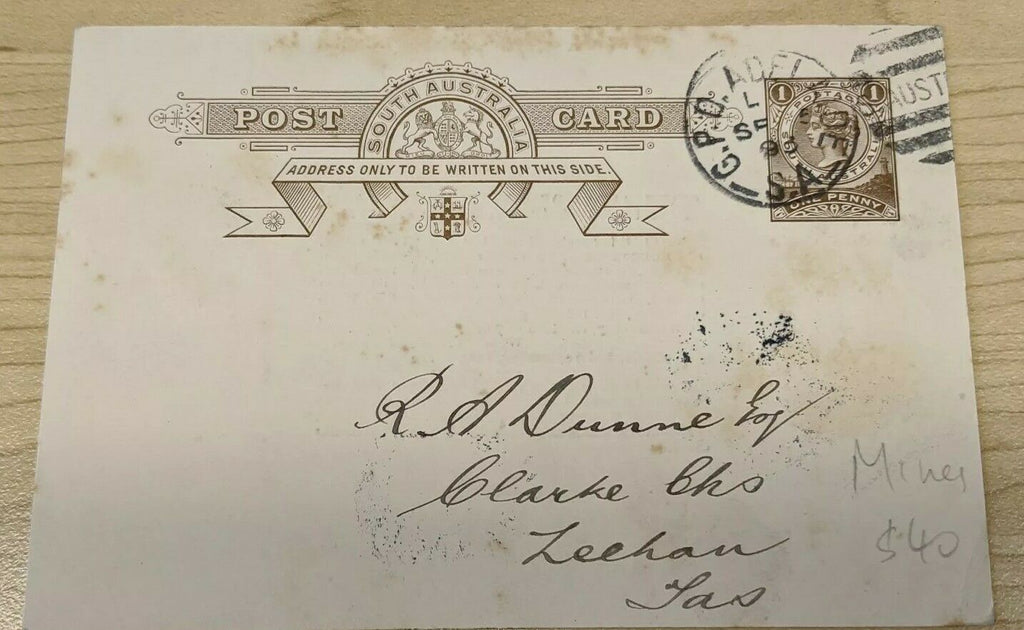 SOUTH AUSTRALIA
POST CARD
ADDRESS ONLY TO BE WRITTEN ON THIS SIDE.
G.P.O. ADEL
S.A
AUST
1 1
POSTAGE
ONE PENNY
R. A Dunne Esq
Clarke Chs
Zeehan
Tas
Mines
$40